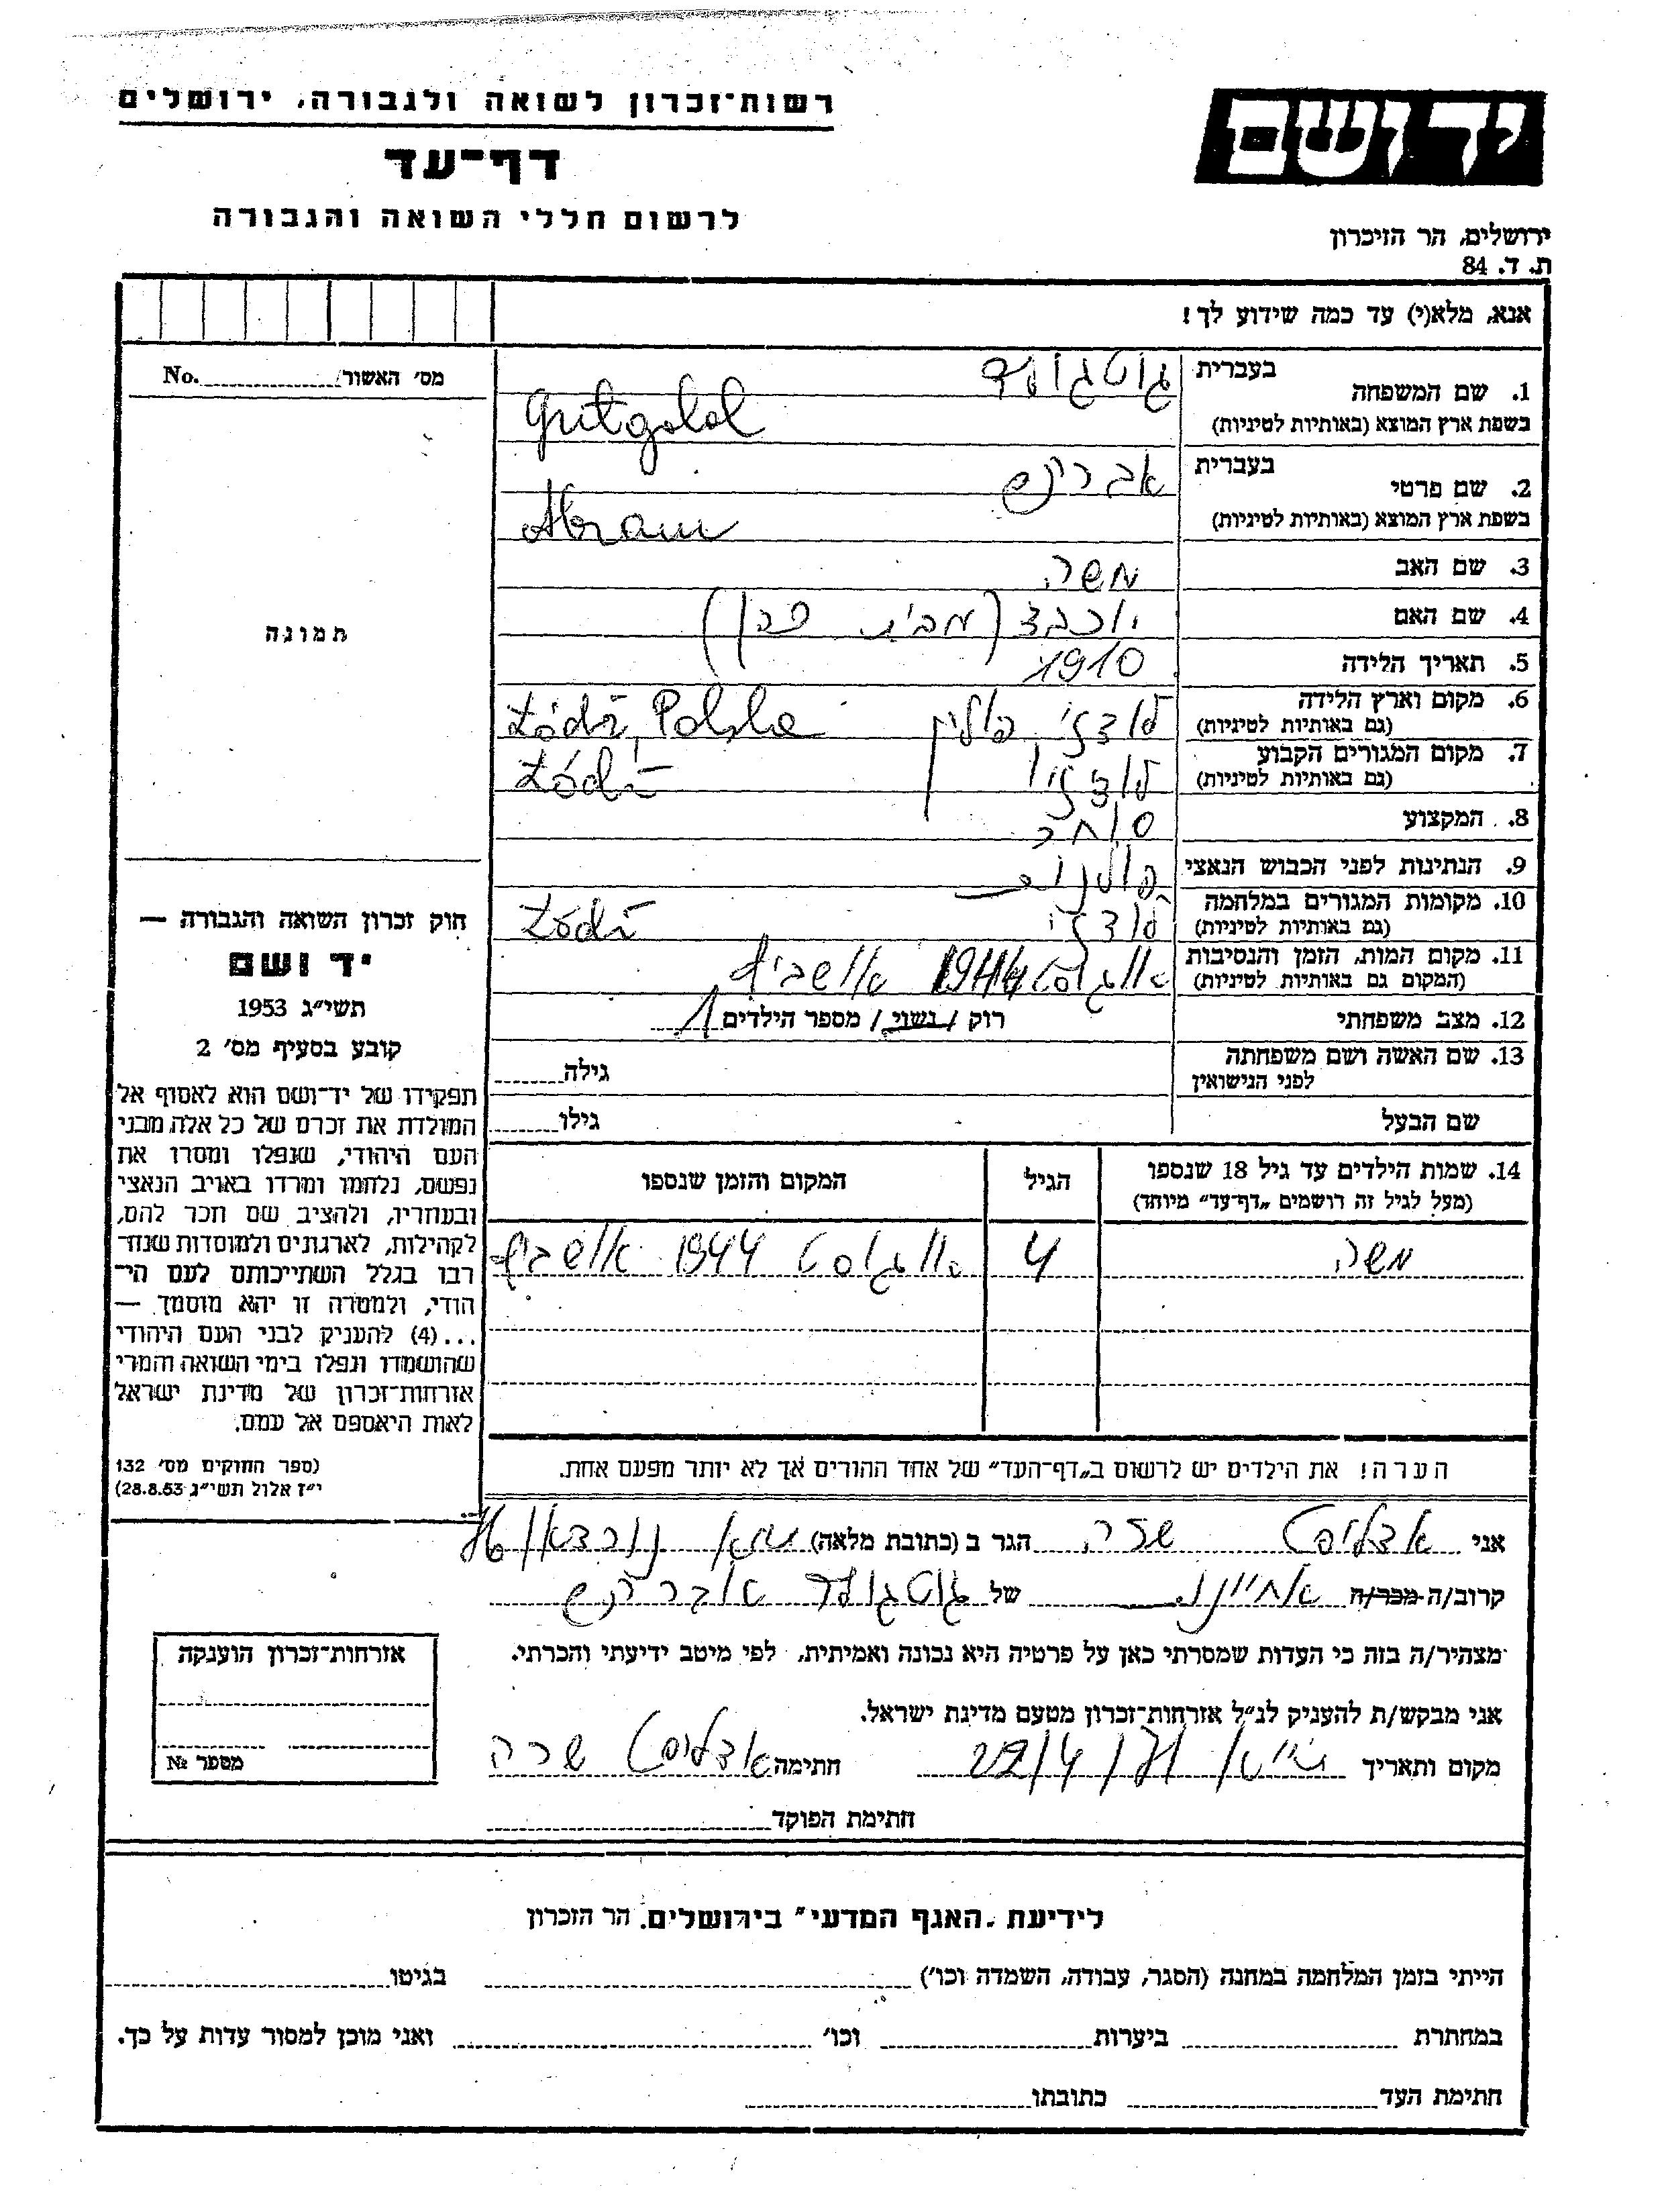 רשות־זכרון לשואה ולגבורה, ירושלים
יד ושם
דף־עד
לרשום חללי השואה והגבורה
ירושלים, הר הזיכרון
ת. ד. 84
אנא, מלא(י) עד כמה שידוע לך!
מס׳ האשור No.
1. שם המשפחה בעברית גוטגולד
בשפת ארץ המוצא (באותיות לטיניות) Gutgold
2. שם פרטי בעברית אברהם
בשפת ארץ המוצא (באותיות לטיניות) Abram
3. שם האב משה
4. שם האם יוכבד (מבית כהן)
5. תאריך הלידה 1910
6. מקום וארץ הלידה לודז׳, פולין Łódź, Polska
(גם באותיות לטיניות)
7. מקום המגורים הקבוע לודז׳ Łódź
(גם באותיות לטיניות)
8. המקצוע סוחר
9. הנתינות לפני הכבוש הנאצי פולנית
10. מקומות המגורים במלחמה לודז׳ Łódź
(גם באותיות לטיניות)
11. מקום המות, הזמן והנסיבות אוגוסט 1944 אושביץ
(המקום גם באותיות לטיניות)
12. מצב משפחתי רוק / נשוי / מספר הילדים 1
13. שם האשה ושם משפחתה גילה
לפני הנישואין
שם הבעל גילו
14. שמות הילדים עד גיל 18 שנספו הגיל המקום והזמן שנספו
(מעל לגיל זה רושמים „דף־עד״ מיוחד)
משה 4 אוגוסט 1944 אושביץ
הערה! את הילדים יש לרשום ב„דף־העד״ של אחד ההורים אך לא יותר מפעם אחת.
תמונה
חוק זכרון השואה והגבורה —
יד ושם
תשי״ג 1953
קובע בסעיף מס׳ 2
תפקידו של יד־ושם הוא לאסוף אל
המולדת את זכרם של כל אלה מבני
העם היהודי, שנפלו ומסרו את
נפשם, נלחמו ומרדו באויב הנאצי
ובעוזריו, ולהציב שם וזכר להם,
לקהילות, לארגונים ולמוסדות שנח־
רבו בגלל השתייכותם לעם הי־
הודי, ולמטרה זו יהא מוסמך —
...(4) להעניק לבני העם היהודי
שהושמדו ונפלו בימי השואה והמרי
אזרחות־זכרון של מדינת ישראל
לאות היאספם אל עמם.
(ספר החוקים מס׳ 132
י״ז אלול תשי״ג 28.8.53)
אני שרה הגר ב (כתובת מלאה)
קרוב/ה מכר/ה אחיינו של גוטגולד אברהם
מצהיר/ה בזה כי העדות שמסרתי כאן על פרטיה היא נכונה ואמיתית, לפי מיטב ידיעתי והכרתי.
אני מבקש/ת להעניק לנ״ל אזרחות־זכרון מטעם מדינת ישראל.
מקום ותאריך 22/4/71 חתימה שרה
חתימת הפוקד
אזרחות־זכרון הוענקה
מספר №
לידיעת „האגף המדעי״ בירושלים, הר הזכרון
הייתי בזמן המלחמה במחנה (הסגר, עבודה, השמדה וכו׳) בגיטו
במחתרת ביערות וכו׳ ואני מוכן למסור עדות על כך.
חתימת העד כתובתו